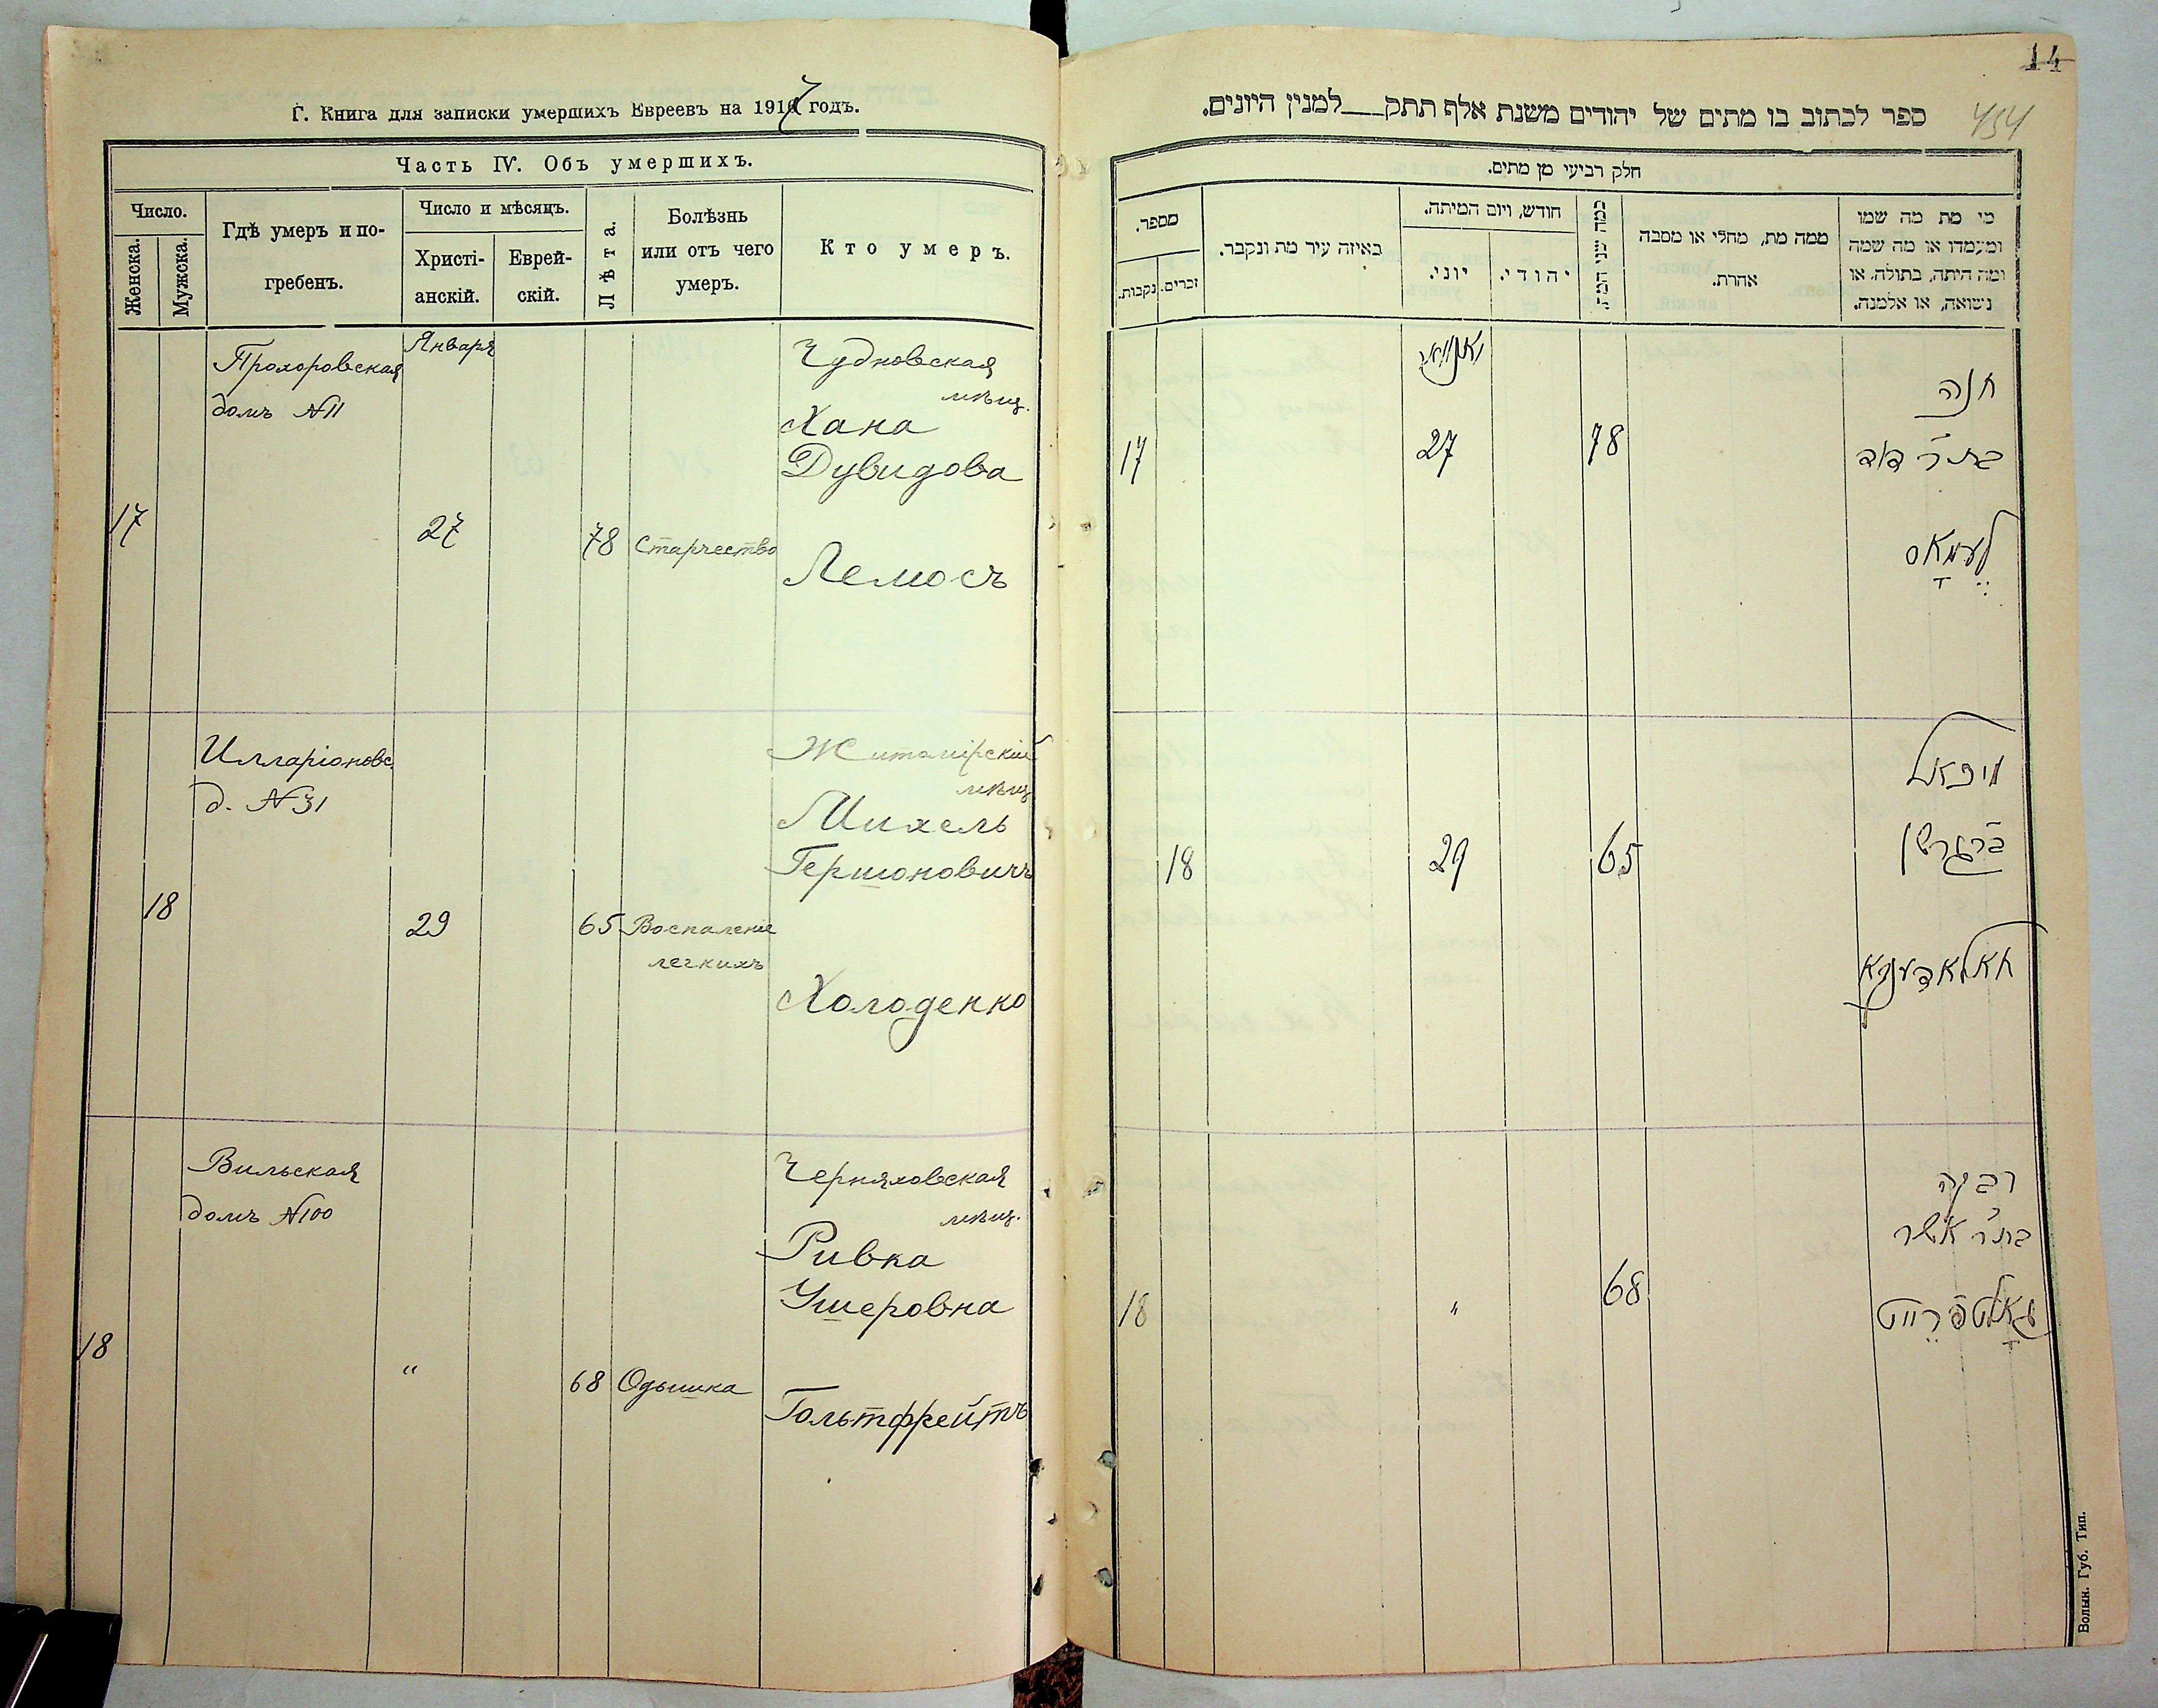 Г. Книга для записки умершихъ Евреевъ на 1917 годъ.
Часть IV. Объ умершихъ.
Число.
Женска.
Мужска.
Гдѣ умеръ и по-
гребенъ.
Число и мѣсяцъ.
Христі-
анскій.
Еврей-
скій.
Лѣта.
Болѣзнь
или отъ чего
умеръ.
Кто умеръ.
Прохоровская
домъ №11
Января
Чудновская
мѣщ.
Хана
Дувидова
17
27
78
Старчество
Лемосъ
Илларіоновс.
д. №31
Житомірскій
мѣщ
Михель
Гершоновичъ
18
29
65
Воспаленіе
легкихъ
Холоденко
Вильская
домъ №100
Черняховская
мѣщ.
Ривка
Ушеровна
18
"
68
Одышка
Гольтфрейтъ
14
454
ספר לכתוב בו מתים של יהודים משנת אלף תתק___למנין היונים.
חלק רביעי מן מתים.
מספר.
נקבות.
זכרים.
באיזה עיר מת ונקבר.
חודש, ויום המיתה.
יוני.
יהודי.
ממה מת, מחלי או מסבה
אחרת.
מי מת מה שמו
ומעמדו או מה שמה
ומה היתה, בתולה, או
נשואה, או אלמנה.
יאנוואר
17
27
78
חנה
בת ר' דוד
לעמאָס
18
29
65
מיכאל
ב"ר גרשון
חאלאדענקא
18
"
68
רבקה
בת ר' אשר
גאָלטפרייט
Волын. Губ. Тип.